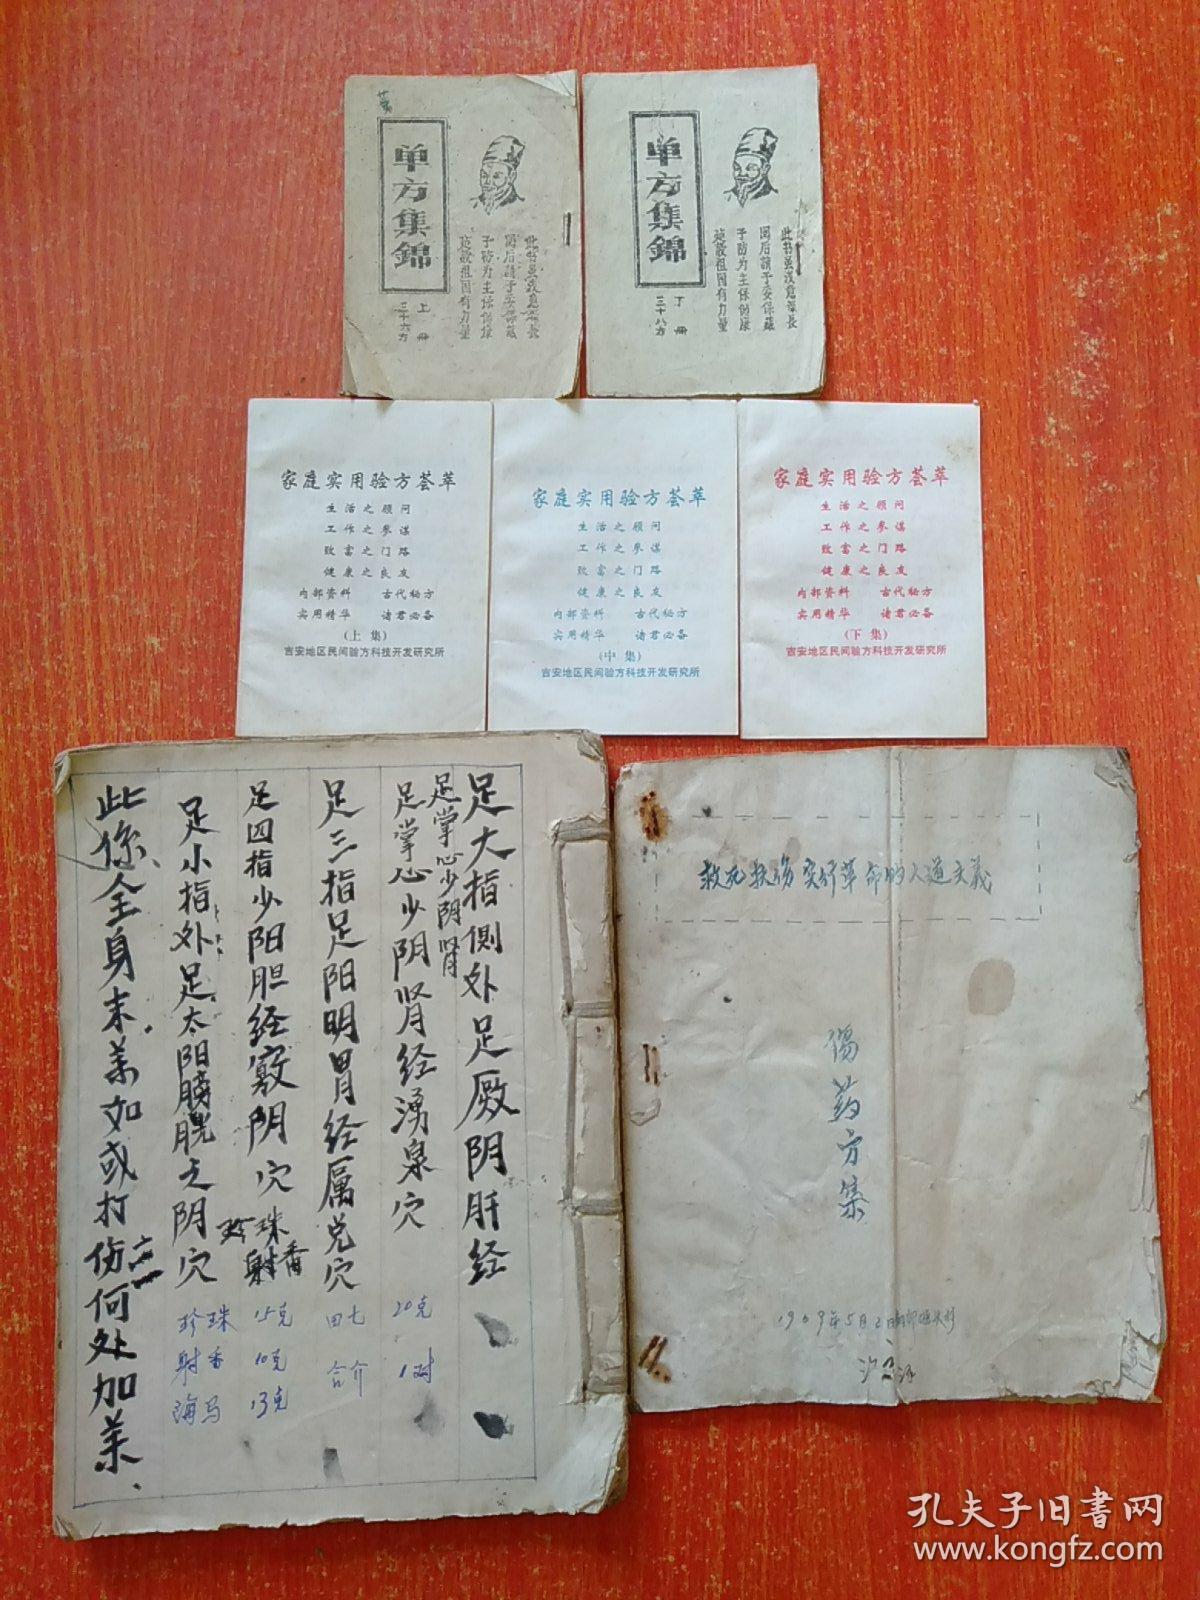 单方集錦
上册
三十六方
此书虽浅意深長
阅后請予妥保藏
予防为主保健康
发散祖国有力量
单方集錦
下册
三十八方
此书虽浅意深長
阅后請予妥保藏
予防为主保健康
发散祖国有力量
家庭实用验方荟萃
生活之顾问
工作之参谋
致富之门路
健康之良友
内部资料 古代秘方
实用精华 诸君必备
(上集)
吉安地区民间验方科技开发研究所
家庭实用验方荟萃
生活之顾问
工作之参谋
致富之门路
健康之良友
内部资料 古代秘方
实用精华 诸君必备
(中集)
吉安地区民间验方科技开发研究所
家庭实用验方荟萃
生活之顾问
工作之参谋
致富之门路
健康之良友
内部资料 古代秘方
实用精华 诸君必备
(下集)
吉安地区民间验方科技开发研究所
足大指側外足厥阴肝经
足掌心少阴肾
足掌心少阴肾经湧泉穴
足三指足阳明胃经厲兑穴
足四指少阳胆经竅阴穴
足小指外足太阳膀胱之阴穴
此係全身末药如或打伤何处加药
珍珠
射香
珍珠 15克 田七 20克
射香 10克 合介 1对
海马 13克
救死扶伤实行革命的人道主義
傷药方集
1969年5月2日
孔夫子旧书网
www.kongfz.com